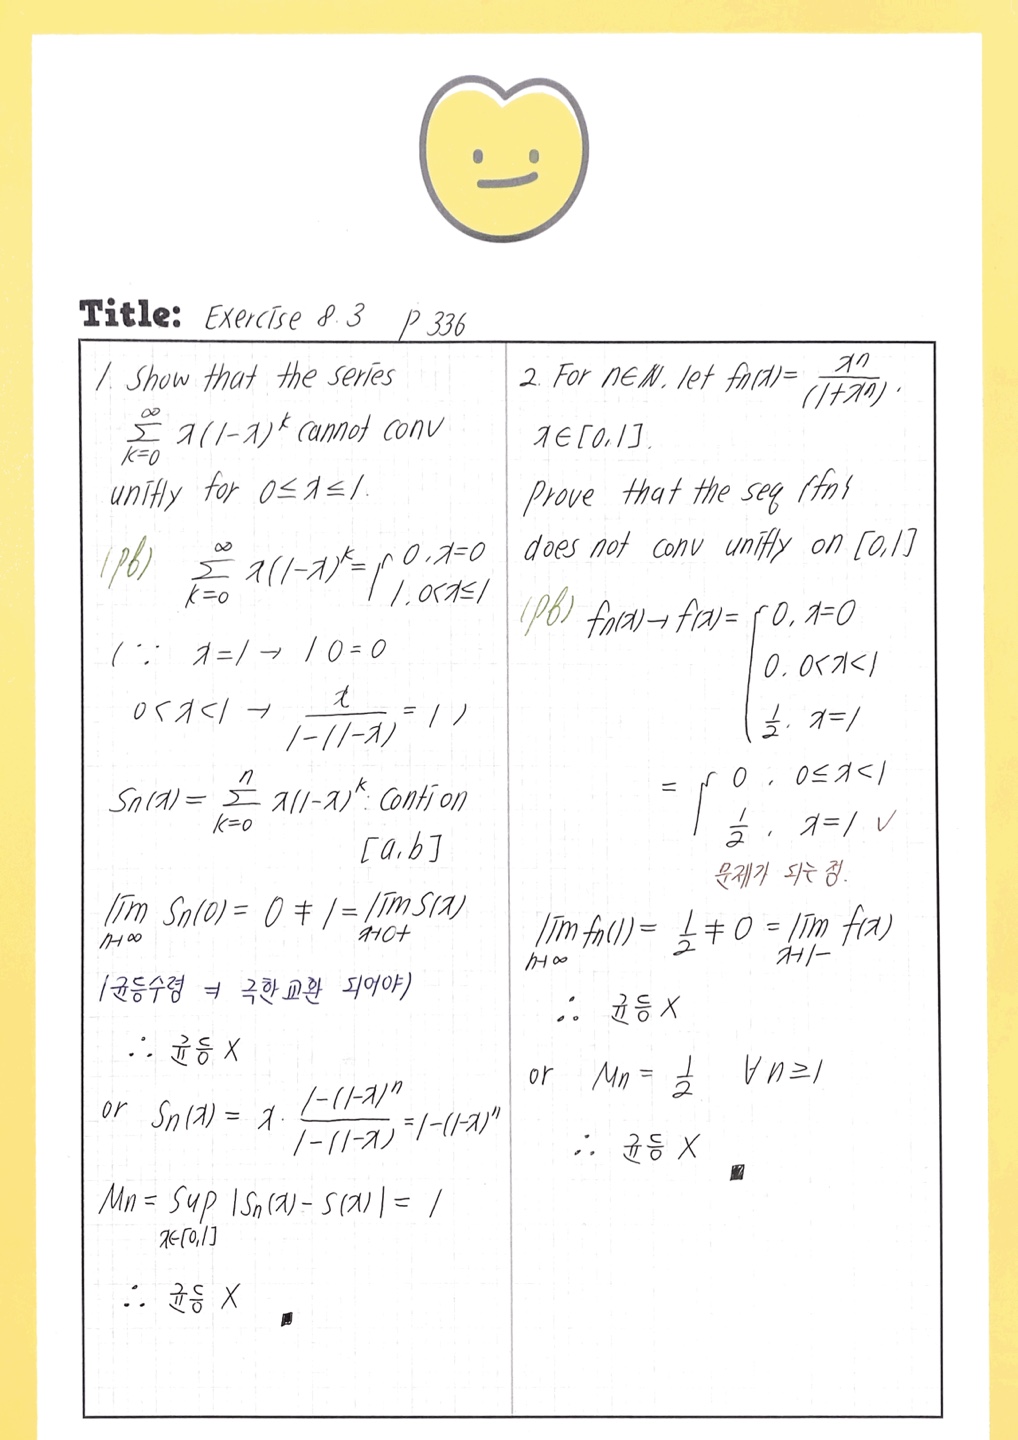 Title: Exercise 8.3 P 336
1. Show that the series
∞
Σ x(1-x)^k cannot conv
k=0
unifly for 0≤x≤1.
(pf) ∞
Σ x(1-x)^k = { 0, x=0
k=0 1, 0<x≤1
(∵ x=1 → 1 0=0
0<x<1 → x/(1-(1-x)) = 1 )
Sn(x) = n
Σ x(1-x)^k : conti on
k=0
[a,b]
lim Sn(0) = 0 ≠ 1 = lim S(x)
n→∞ x→0+
(균등수렴 ⇒ 극한교환 되어야)
∴ 균등 X
or Sn(x) = x · (1-(1-x)^n)/(1-(1-x)) = 1-(1-x)^n
Mn = sup |Sn(x) - S(x)| = 1
x∈[0,1]
∴ 균등 X ■
2. For n∈N, let fn(x) = x^n/(1+x^n),
x∈[0,1].
Prove that the seq {fn}
does not conv unifly on [0,1]
(pf) fn(x) → f(x) = { 0, x=0
0, 0<x<1
1/2, x=1
= { 0, 0≤x<1
1/2, x=1 ✓
문제가 되는 점.
lim fn(1) = 1/2 ≠ 0 = lim f(x)
n→∞ x→1-
∴ 균등 X
or Mn = 1/2 ∀n≥1
∴ 균등 X ■